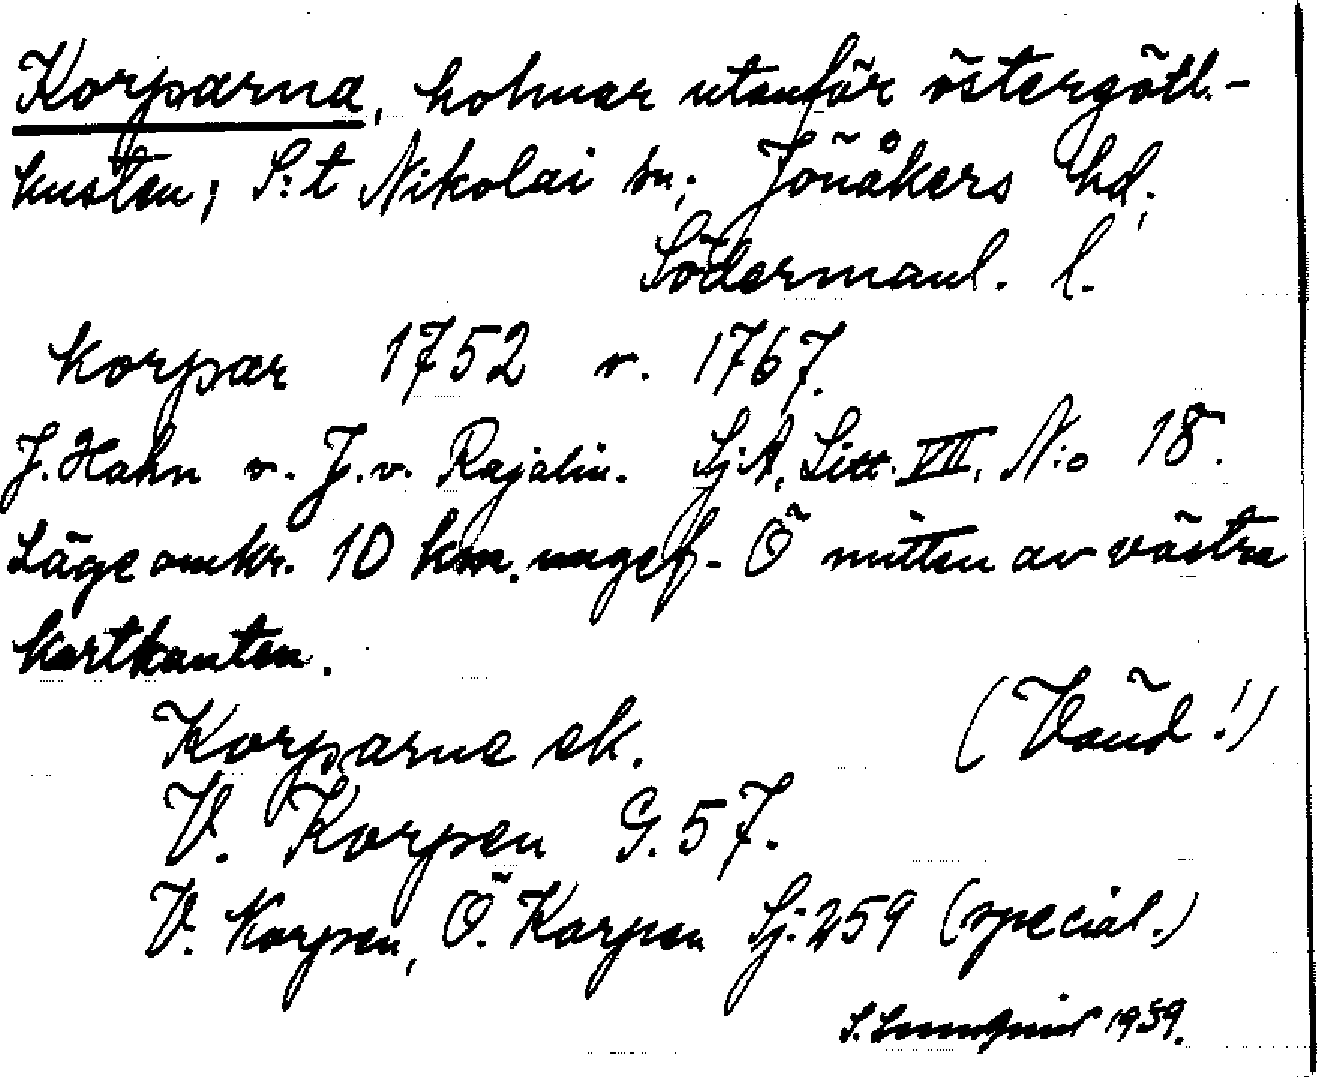 Korparna, holmar utanför östergötl.-
kusten; S:t Nikolai sn; Jönåkers hd;
Södermanl. l.
Korpar 1752 o. 1767.
J. Hahn o. J. v. Rajalin. Sj.A. Litt. VII. N:o 18.
Läge omkr. 10 km. ungef. Ö mitten av västra
kartkanten.
(Vänd!)
Korparne ek.
V. Korpen G. 57.
V. Korpen, Ö. Korpen Sj. 259 (special.)
1939.